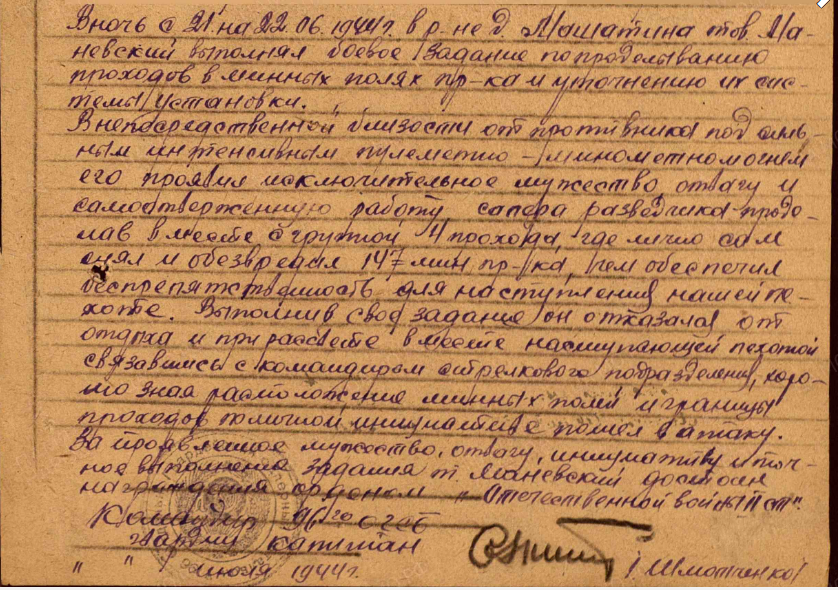 В ночь с 21 на 22.06.1944г. в р-не д. Машатина тов. Ма-
невский выполнял боевое задание по проделыванию
проходов в минных полях пр-ка и уточнению их сис-
темы установки.
В непосредственной близости от противника под силь-
ным интенсивным пулеметно-минометном огнем
его проявил исключительное мужество, отвагу и
самоотверженную работу сапера разведчика проде-
лав вместе с группой 4 прохода, где лично сам
снял и обезвредил 147 мин пр-ка, чем обеспечил
беспрепятственность для наступления нашей пе-
хоте. Выполнив своё задание он отказался от
отдыха и при рассвете вместе наступающей пехотой
связавшись с командиром стрелкового подразделения, хоро-
шо зная расположение минных полей и границы
проходов по личной инициативе пошел в атаку.
За проявленное мужество, отвагу, инициативу и точ-
ное выполнение задания т. Маневский достоен
награждения орденом „Отечественной войны II ст".
Командир 96го
гвардии капитан
" " июля 1944г. / Шмотченко /